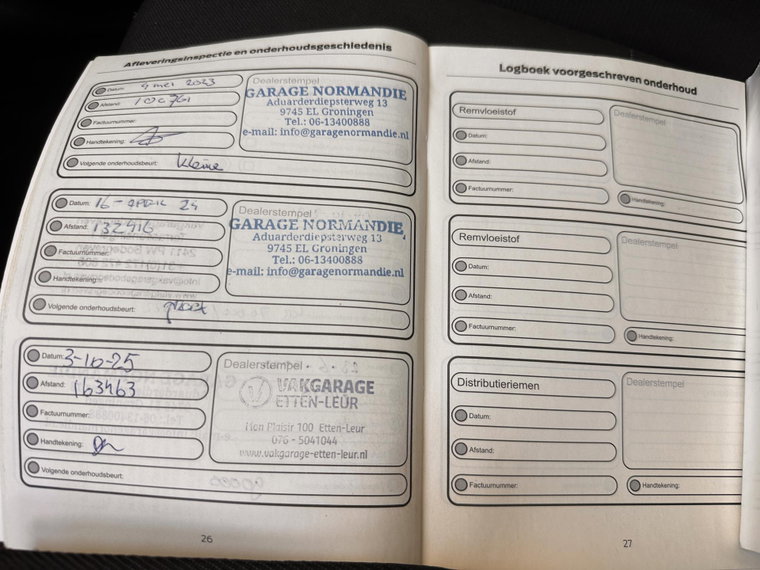 Afleveringsinspectie en onderhoudsgeschiedenis
Datum: 4 mei 2023
Afstand:
Factuurnummer:
Handtekening:
Volgende onderhoudsbeurt: kleine
Dealerstempel
GARAGE NORMANDIE
Aduarderdiepsterweg 13
9745 EL Groningen
Tel.: 06-13400888
e-mail: info@garagenormandie.nl
Datum: 16-APRIL 24
Afstand: 132416
Factuurnummer:
Handtekening:
Volgende onderhoudsbeurt: groot
Dealerstempel
GARAGE NORMANDIE
Aduarderdiepsterweg 13
9745 EL Groningen
Tel.: 06-13400888
e-mail: info@garagenormandie.nl
Datum: 3-10-25
Afstand: 163463
Factuurnummer:
Handtekening:
Volgende onderhoudsbeurt:
Dealerstempel
VAKGARAGE
ETTEN-LEUR
Mon Plaisir 100 Etten-Leur
076 - 5041044
www.vakgarage-etten-leur.nl
26
Logboek voorgeschreven onderhoud
Remvloeistof
Datum:
Afstand:
Factuurnummer:
Dealerstempel
Handtekening:
Remvloeistof
Datum:
Afstand:
Factuurnummer:
Dealerstempel
Handtekening:
Distributieriemen
Datum:
Afstand:
Factuurnummer:
Dealerstempel
Handtekening:
27